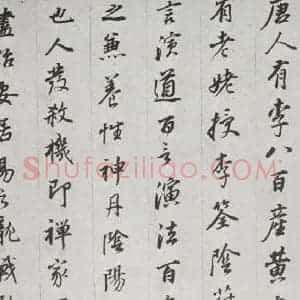 唐人有李八百産黄
有老姥授李筌陰
言演道百言演法百
之兼養性神丹陰陽
也人發殺機即禅家
盡治安居易
Shufaziliao.com